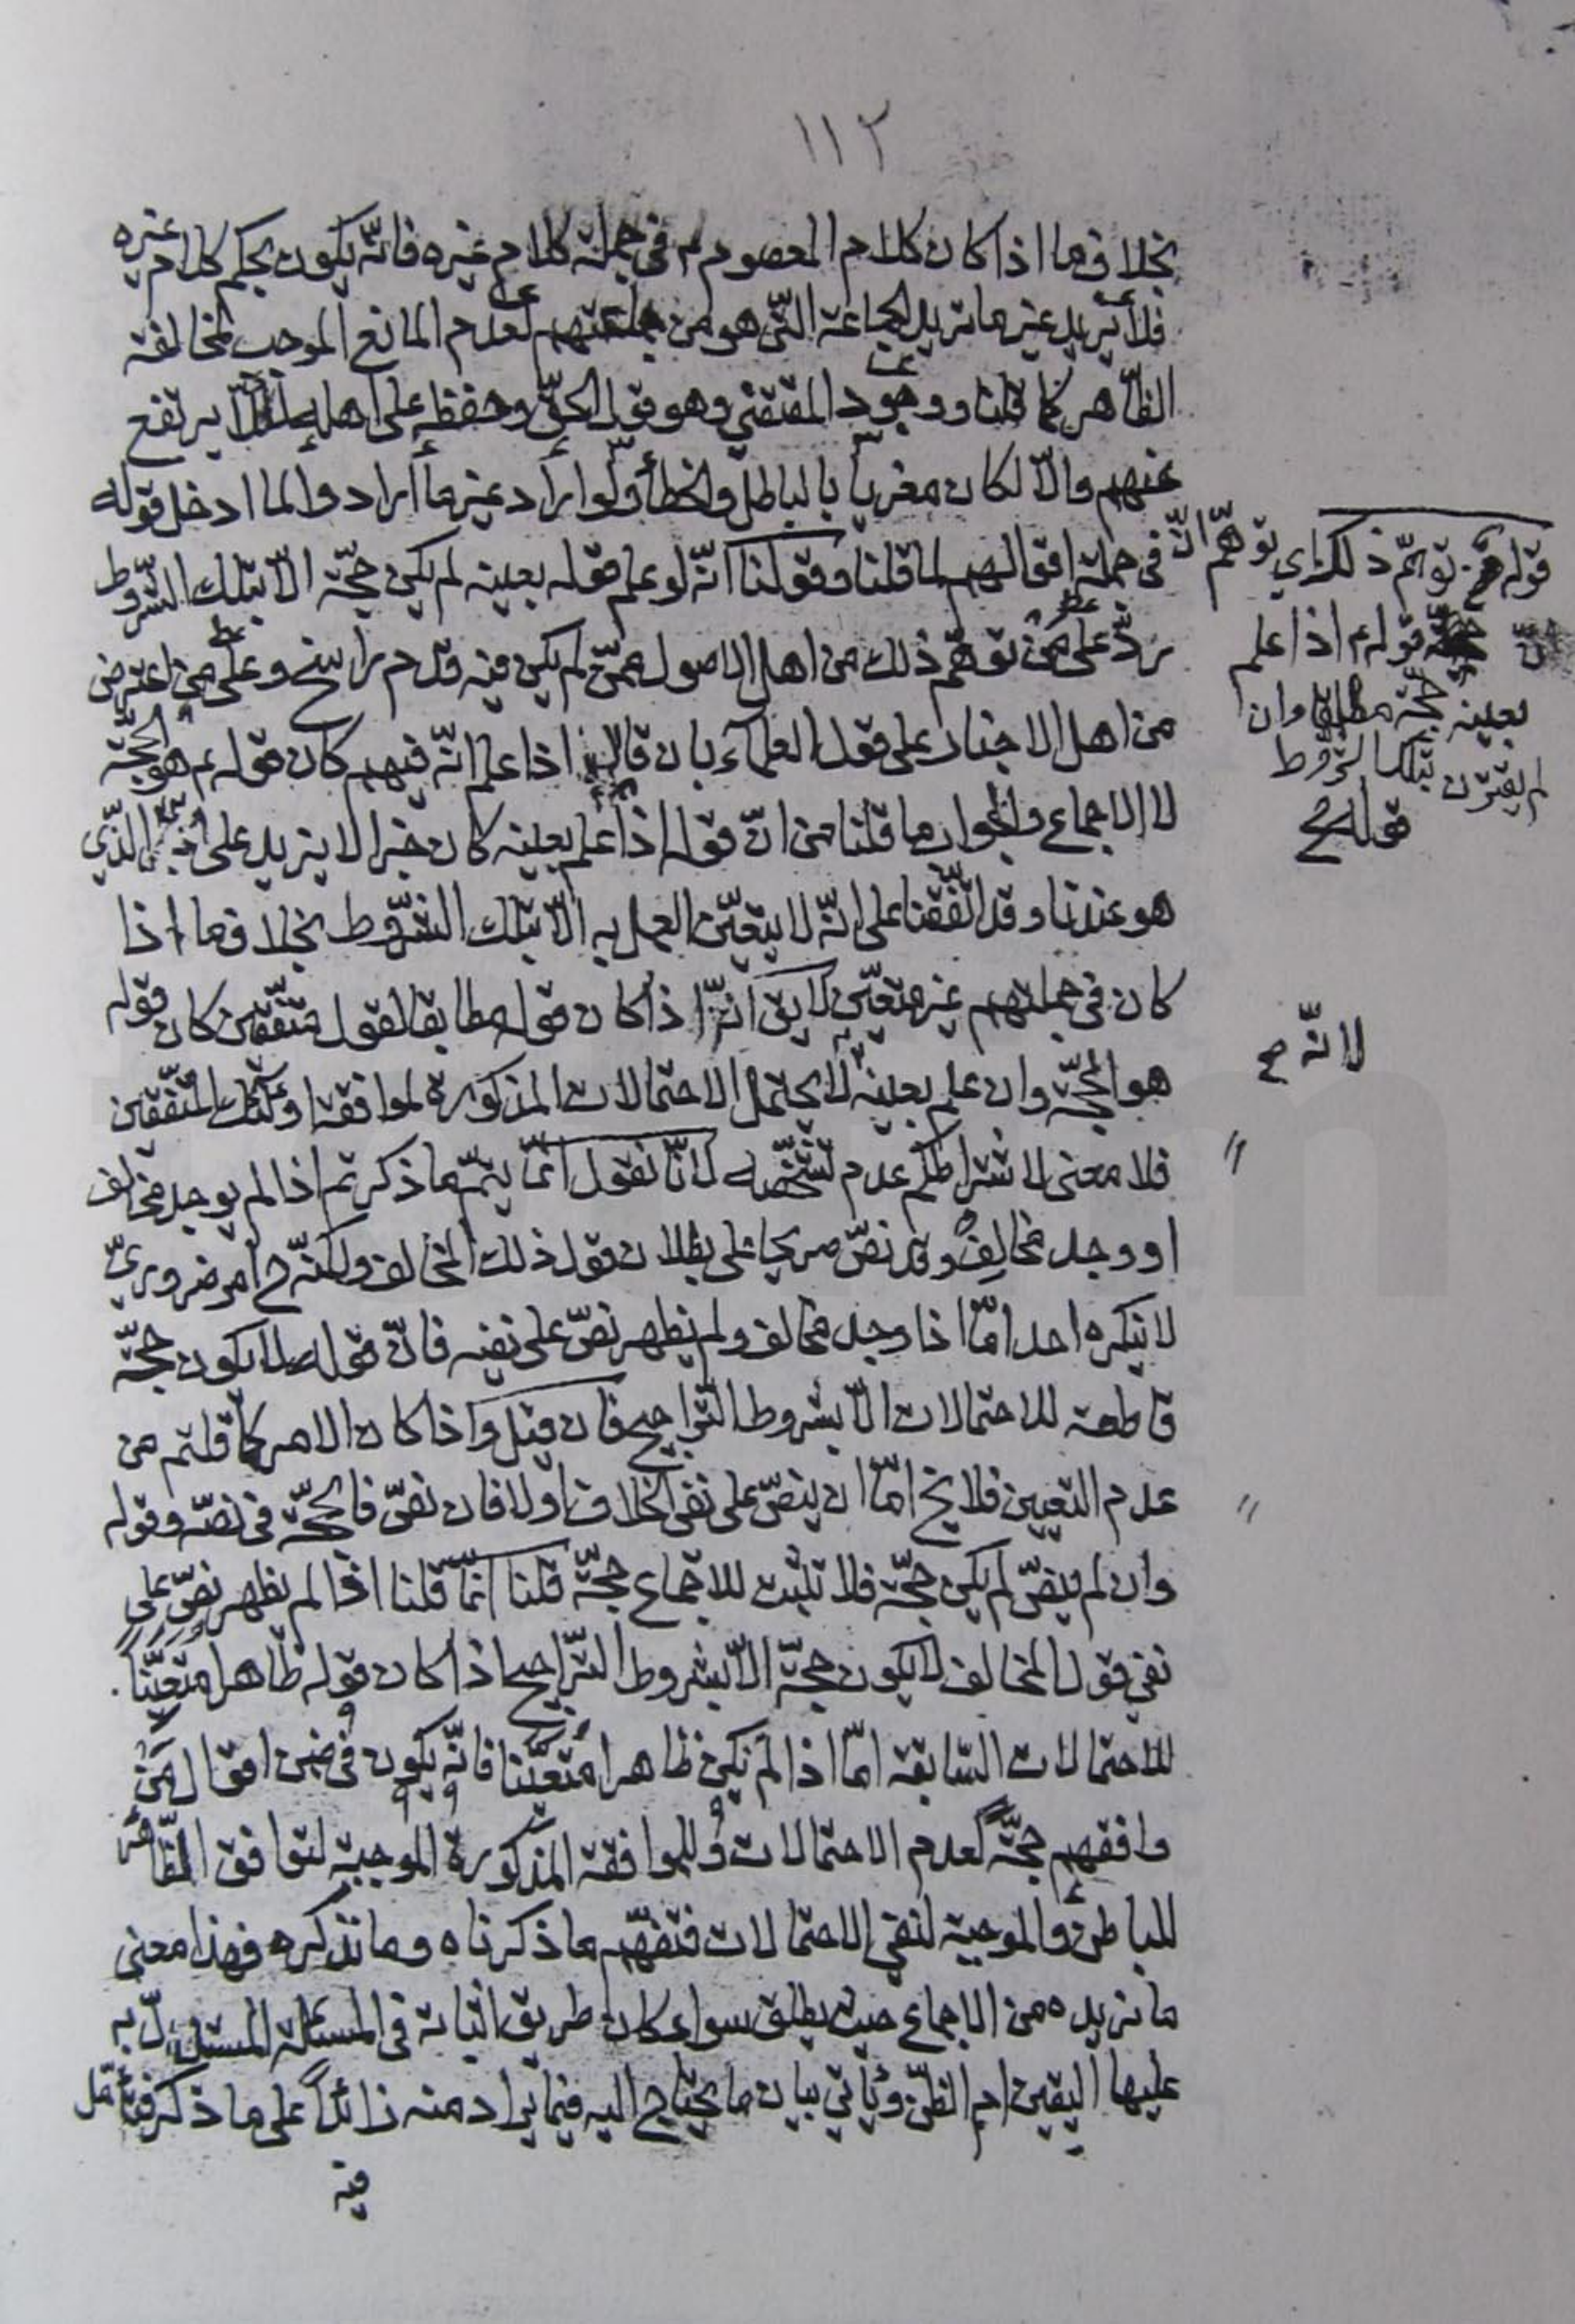 ١١٢
بخلاف ما اذا كان كلام المعصوم م في جملة كلام غيره فانّه يكون بحكم كلام غيره
فلا يريد غير ما تريد الجماعة الّتي هو من جملتهم لعدم المانع الموجب لمخالفة
الظاهر كما قلنا ووجود المقتضي وهو قول الحقّ وحفظه على اهله لئلّا يرتفع
عنهم والّا لكان مغريا بالباطل والخطأ ولو اراد غير ما ارادوا لما ادخل قوله
في جملة اقوالهم لما قلنا وقولنا انّه لو علم قوله بعينه لم يكن حجّة الّا بتلك الشروط
ردّ على من توهّم ذلك من اهل الاصول ممّن لم يكن فيه قدم راسخ وعلى من اعترض
من اهل الاخبار على قول العلماء بان قال اذا علم انّه فيهم كان قوله م هو الحجّة
لا الاجماع والجواب ما قلنا من انّ قوله اذا علم بعينه كان خبرا لا يزيد على الّذي
هو عندنا وقد اتّفقنا على انّه لا يتعيّن العمل به الّا بتلك الشّروط بخلاف ما اذا
كان في جملتهم غير متعيّن لا يق انّه اذا كان قوله مطابقا لقول متّفقين كان قوله
هو الحجّة وان علم بعينه لا يحتمل الاحتمالات المذكورة لموافقة اولئك المتّفقين
فلا معنى لاشتراطكم عدم تشخّصه لانّا نقول انّما يتمّ ما ذكرتم اذا لم يوجد مخالف
او وجد مخالف وقد نصّ صريحا على بطلان قول ذلك المخالف ولكنّه ح امر ضروريّ
لا ينكره احد امّا اذا وجد مخالف ولم يظهر نصّ على نفيه فانّ قوله لا يكون حجّة
قاطعة للاحتمالات الّا بشروط التراجيح فان قيل واذا كان الامر كما قلتم من
عدم التعيين فلا يخ امّا ان ينصّ على نفي الخلاف او لا فان نصّ فالحجّة في نصّه وقوله
وان لم ينصّ لم يكن حجّة فلا تثبت للاجماع حجّة قلنا انّما قلنا اذا لم يظهر نصّ على
نفي قول المخالف لا يكون حجّة الّا بشروط التّراجيح اذا كان قوله ظاهرا متعيّنا
للاحتمالات السّابقة امّا اذا لم يكن ظاهرا متعيّنا فانّه يكون في ضمن اقوال من
وافقهم حجّة لعدم الاحتمالات وللموافقة المذكورة الموجبة لتوافق الظّاهر
للباطن والموجبة لنفي الاحتمالات فتفهّم ما ذكرناه وما نذكره فهذا معنى
ما نريده من الاجماع حيث يطلق سواء كان طريق اثباته في المسئلة المستدلّ به
عليها اليقين ام الظنّ ويأتي بيان ما يحتاج اليه فيما يراد منه زائدا على ما ذكر فتأمّل
فيه
قوله توهّم ذلك اي توهّم انّ
قوله م اذا علم
بعينه حجّة مطلقا وان
لم يقترن بتلك الشروط
قوله ح
لانّه ح